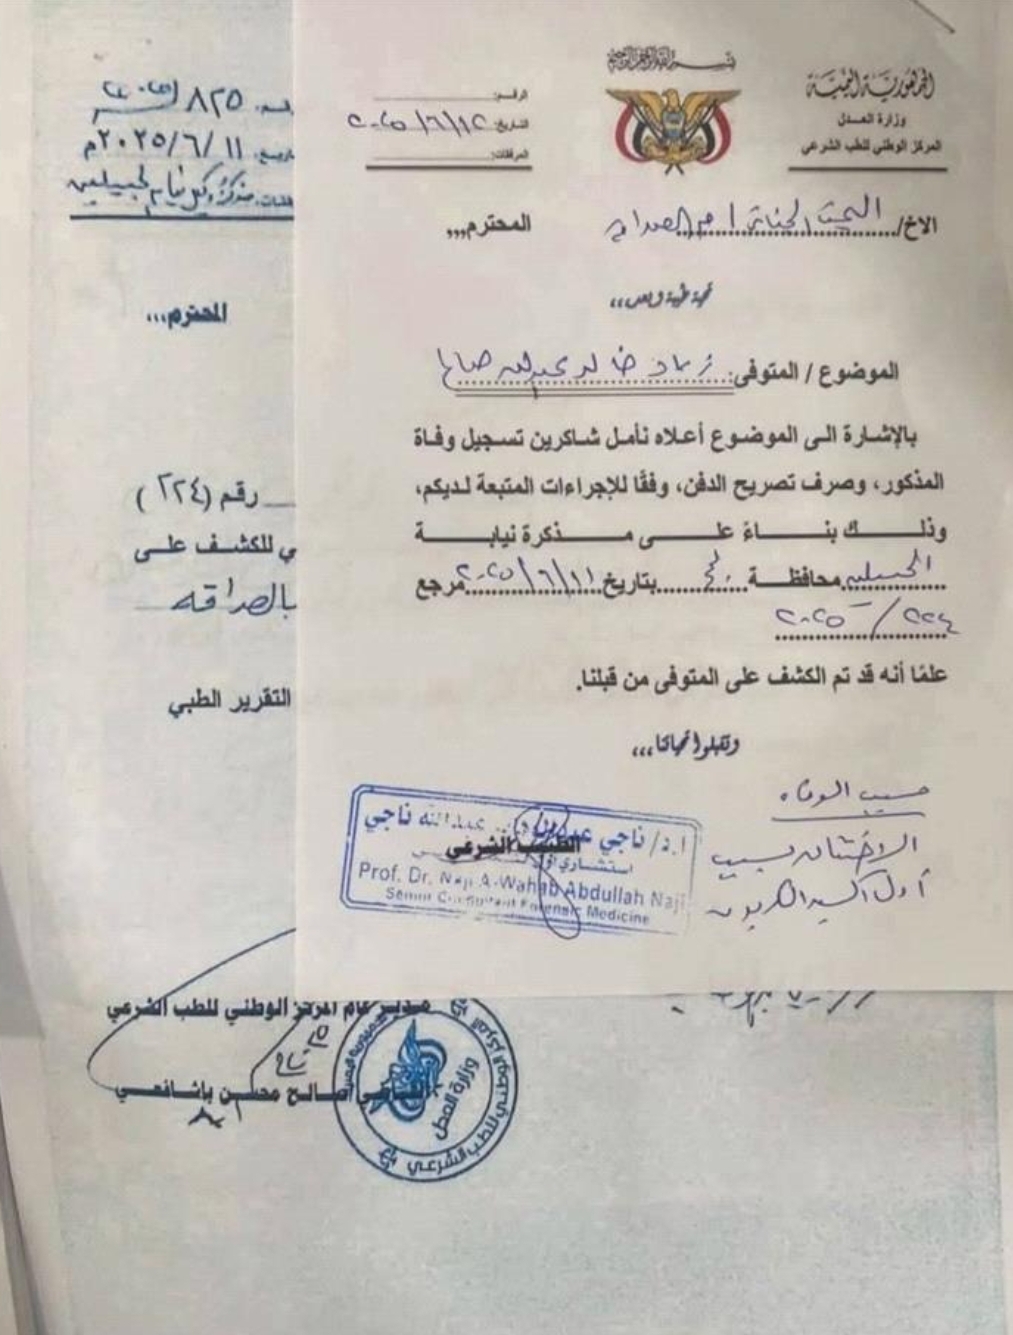 بسم الله الرحمن الرحيم
الجمهورية اليمنية
وزارة العدل
المركز الوطني للطب الشرعي
الرقم:
التاريخ: ٢٠٢٥/٦/١٢
المرفقات:
الاخ/ البحث الجنائي المحترم,,,
تحية طيبة وبعد,,
الموضوع / المتوفى: خالد عبدالله صالح
بالإشارة الى الموضوع أعلاه نأمل شاكرين تسجيل وفاة
المذكور، وصرف تصريح الدفن، وفقًا للإجراءات المتبعة لديكم،
وذلك بناءً على مذكرة نيابة
محافظة بتاريخ ٢٠٢٥/٦/١١ مرجع
٢٢٤/ ٢٠٢٥
علمًا أنه قد تم الكشف على المتوفى من قبلنا.
وتقبلوا تحياتنا,,,
سبب الوفاه
الاختناق بسبب
أول اكسيد الكربون
الطبيب الشرعي
ا.د/ ناجي عبدالله ناجي
Prof. Dr. Naji A-Wahab Abdullah Naji
Senior Consultant Forensic Medicine
٨٢٥
٢٠٢٥/٦/١١م
المحترم,,,
رقم (٢٢٤)
ي للكشف على
التقرير الطبي
مدير عام المركز الوطني للطب الشرعي
القاضي/صالح محسن باشافعي
وزارة العدل
المركز الوطني للطب الشرعي